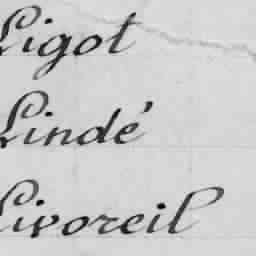 Ligot
Lindé
Livoreil